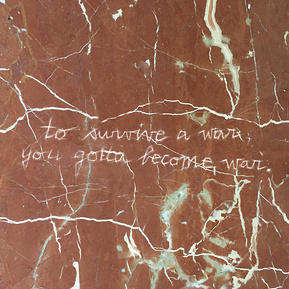 to survive a war,
you gotta become war.